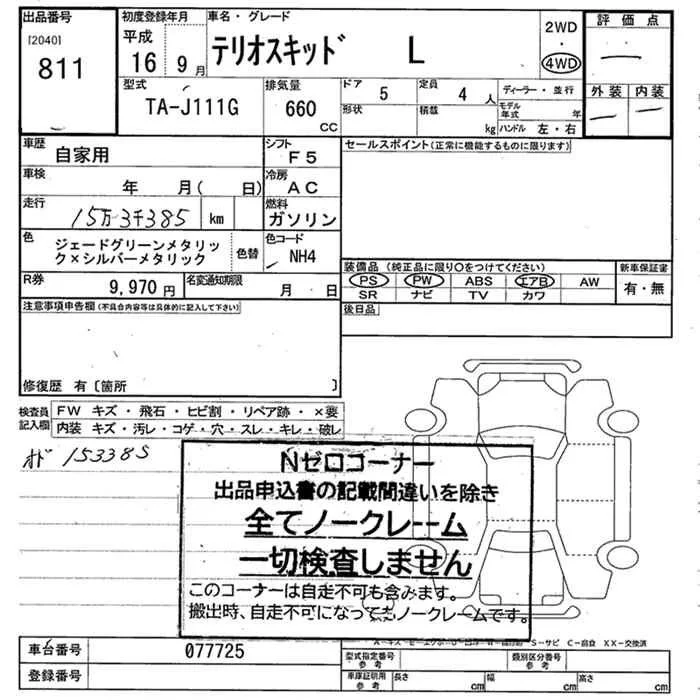 出品番号
[2040]
811
初度登録年月
平成
16 9月
車名・グレード
テリオスキッド L
2WD
・
4WD
評価点
外装 内装
型式
TA-J111G
排気量
660
CC
ドア
5
定員
4 人
形状
積載
kg
ディーラー・並行
モデル年式 年
ハンドル 左・右
車歴
自家用
シフト
F5
セールスポイント(正常に機能するものに限ります)
車検
年 月( 日)
冷房
AC
走行
15万3千385 km
燃料
ガソリン
色
ジェードグリーンメタリッ
ク×シルバーメタリック
色替
色コード
NH4
装備品 (純正品に限り○をつけてください)
PS PW ABS エアB AW
SR ナビ TV カワ
新車保証書
有・無
R券
9,970 円
名変通知期限
月 日
後日品
注意事項申告欄(不具合内容等は具体的に記入して下さい)
修復歴 有〔箇所 〕
検査員
記入欄
FW キズ・飛石・ヒビ割・リペア跡・×要
内装 キズ・汚レ・コゲ・穴・スレ・キレ・破レ
オド 153385
Nゼロコーナー
出品申込書の記載間違いを除き
全てノークレーム
一切検査しません
このコーナーは自走不可も含みます。
搬出時、自走不可になってもノークレームです。
S-サビ C-腐食 XX-交換済
車台番号
077725
登録番号
型式指定番号
参考
類別区分番号
参考
車庫証明用
参考
長さ cm
幅 cm
高さ cm